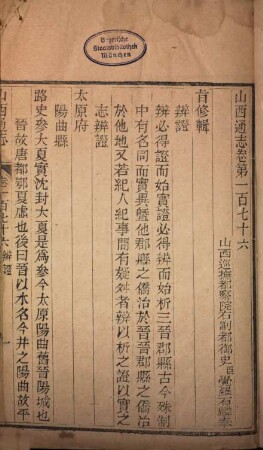 Bayerische
Staatsbibliothek
München
山西通志卷第一百七十六
山西巡撫都察院右副都御史臣覺羅石麟奉
旨修輯
辨證
辨必得證而始實證必得辨而始析三晉郡縣古今殊制
中有名同而實異曁他郡縣之僑治於晉晉郡縣之僑治
於他地又若紀人紀事間有疑舛者辨以析之證以實之
志辨證
太原府
陽曲縣
路史參大夏實沈封大夏是為參今太原陽曲舊晉陽城也
晉故唐都鄂夏虛也後曰晉以水名今并之陽曲故平
山西通志
卷一百七十六 辨證
一